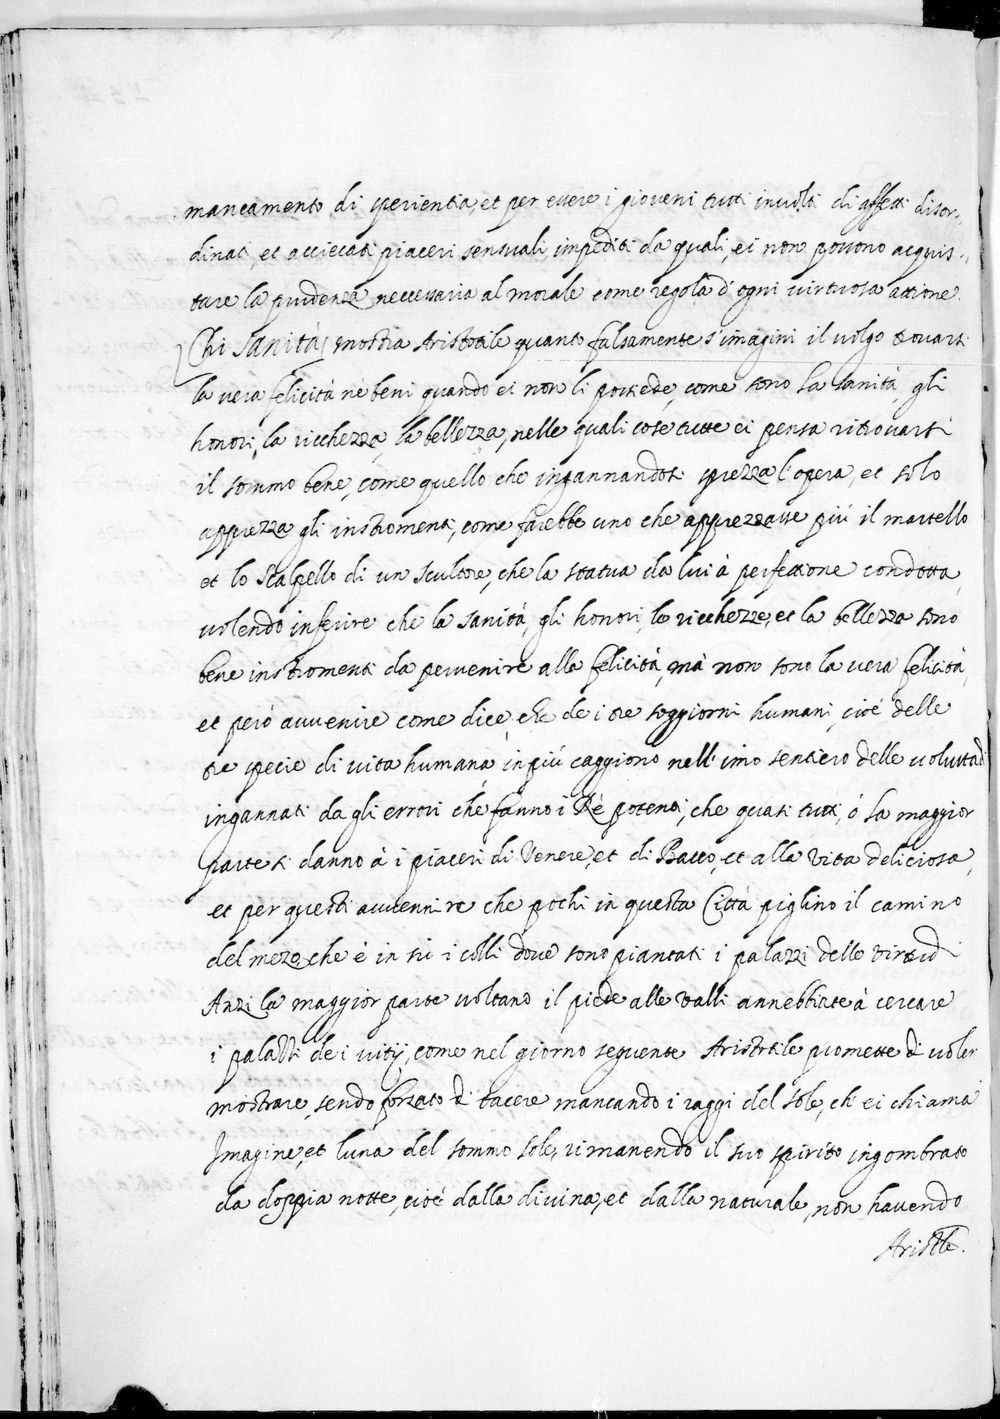 mancamento di sperientia, et per essere i gioveni tutti involti di affetti disor-
dinati, et acciecati piaceri sensuali, impediti da quali, ei non possono acquis-
tare la prudenza neccessaria al morale come regola d'ogni virtuosa attione.
Chi sanità, mostra Aristotile quanto falsamente s'imagini il volgo trovarsi
la vera felicità ne beni quando ei non li possede, come sono la sanità, gli
honori, la ricchezza, la bellezza, nelle quali cose tutte ei pensa ritrovarsi
il sommo bene, come quello che ingannandosi sprezza l'opera, et solo
apprezza gli instromenti, come farebbe uno che apprezzasse più il martello
et lo scalpello di un scultore, che la statua da lui à perfettione condotta,
volendo inferire che la sanità, gli honori, le ricchezze, et la bellezza sono
bene instromenti da pervenire alla felicità, mà non sono la vera felicità,
et però avvenire come dice, che de i tre soggiorni humani, cioè delle
tre specie di vita humana, in più caggiono nell'imo sentiero delle voluttadi
ingannati da gli errori che fanno i Rè potenti, che quasi tutti, ò la maggior
parte si danno à i piaceri di Venere, et di Bacco, et alla vita deliciosa,
et per questi avvennire che pochi in questa Città piglino il camino
del mezo, che è in sù i colli dove sono piantati i palazzi delle virtudi
Anzi la maggior parte voltano il piede alle valli annebbiate à cercare
i palazzi de i vitij, come nel giorno seguente Aristotile promette di voler
mostrare, sendo forzato di tacere mancando i raggi del sole, ch'ei chiama
Imagine, et luna del sommo sole, rimanendo il suo spirito ingombrato
da doppia notte, cioè dalla divina, et dalla naturale, non havendo
Aristle.